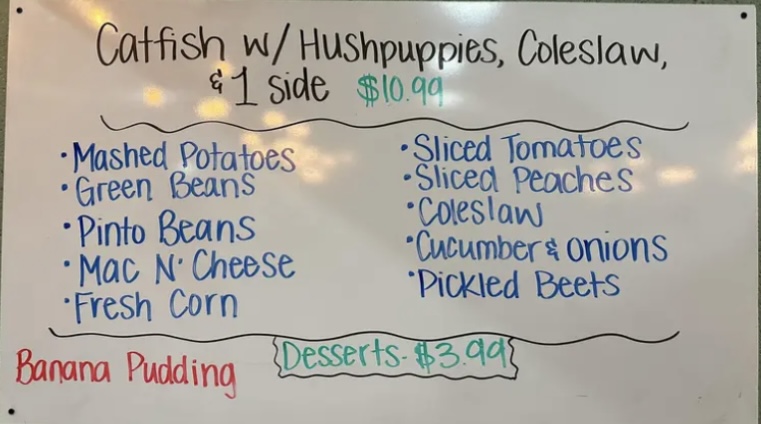 Catfish w/ Hushpuppies, Coleslaw,
& 1 side $10.99
• Mashed Potatoes
• Green Beans
• Pinto Beans
• Mac N' Cheese
• Fresh Corn
• Sliced Tomatoes
• Sliced Peaches
• Coleslaw
• Cucumber & Onions
• Pickled Beets
Desserts - $3.99
Banana Pudding